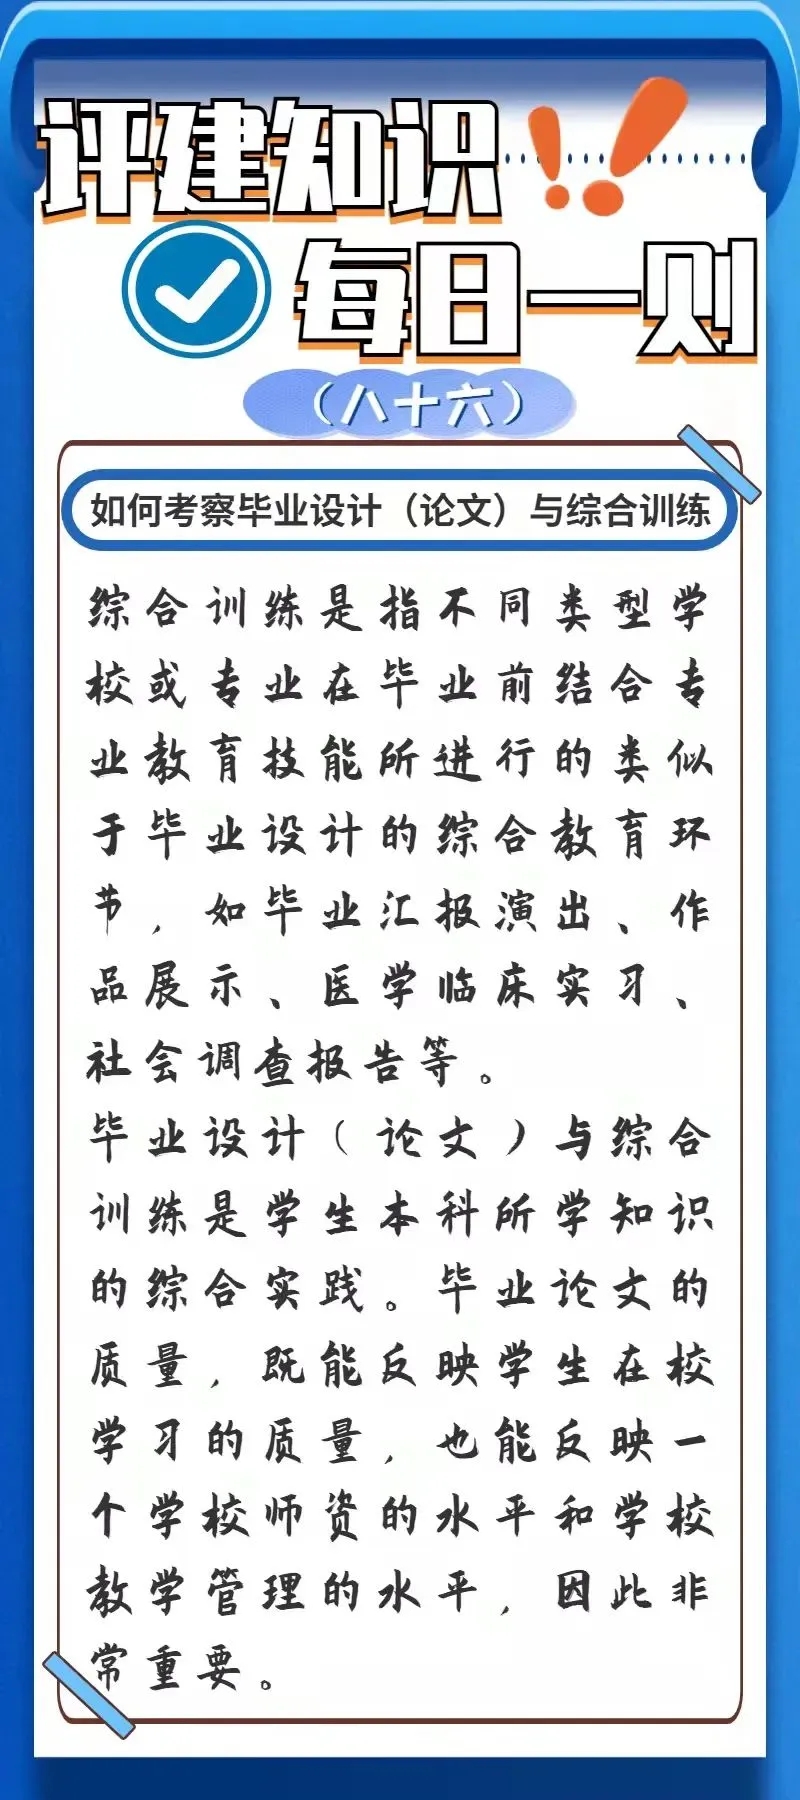 评建知识
每日一则
（八十六）
如何考察毕业设计（论文）与综合训练
综合训练是指不同类型学
校或专业在毕业前结合专
业教育技能所进行的类似
于毕业设计的综合教育环
节，如毕业汇报演出、作
品展示、医学临床实习、
社会调查报告等。
毕业设计（论文）与综合
训练是学生本科所学知识
的综合实践。毕业论文的
质量，既能反映学生在校
学习的质量，也能反映一
个学校师资的水平和学校
教学管理的水平，因此非
常重要。